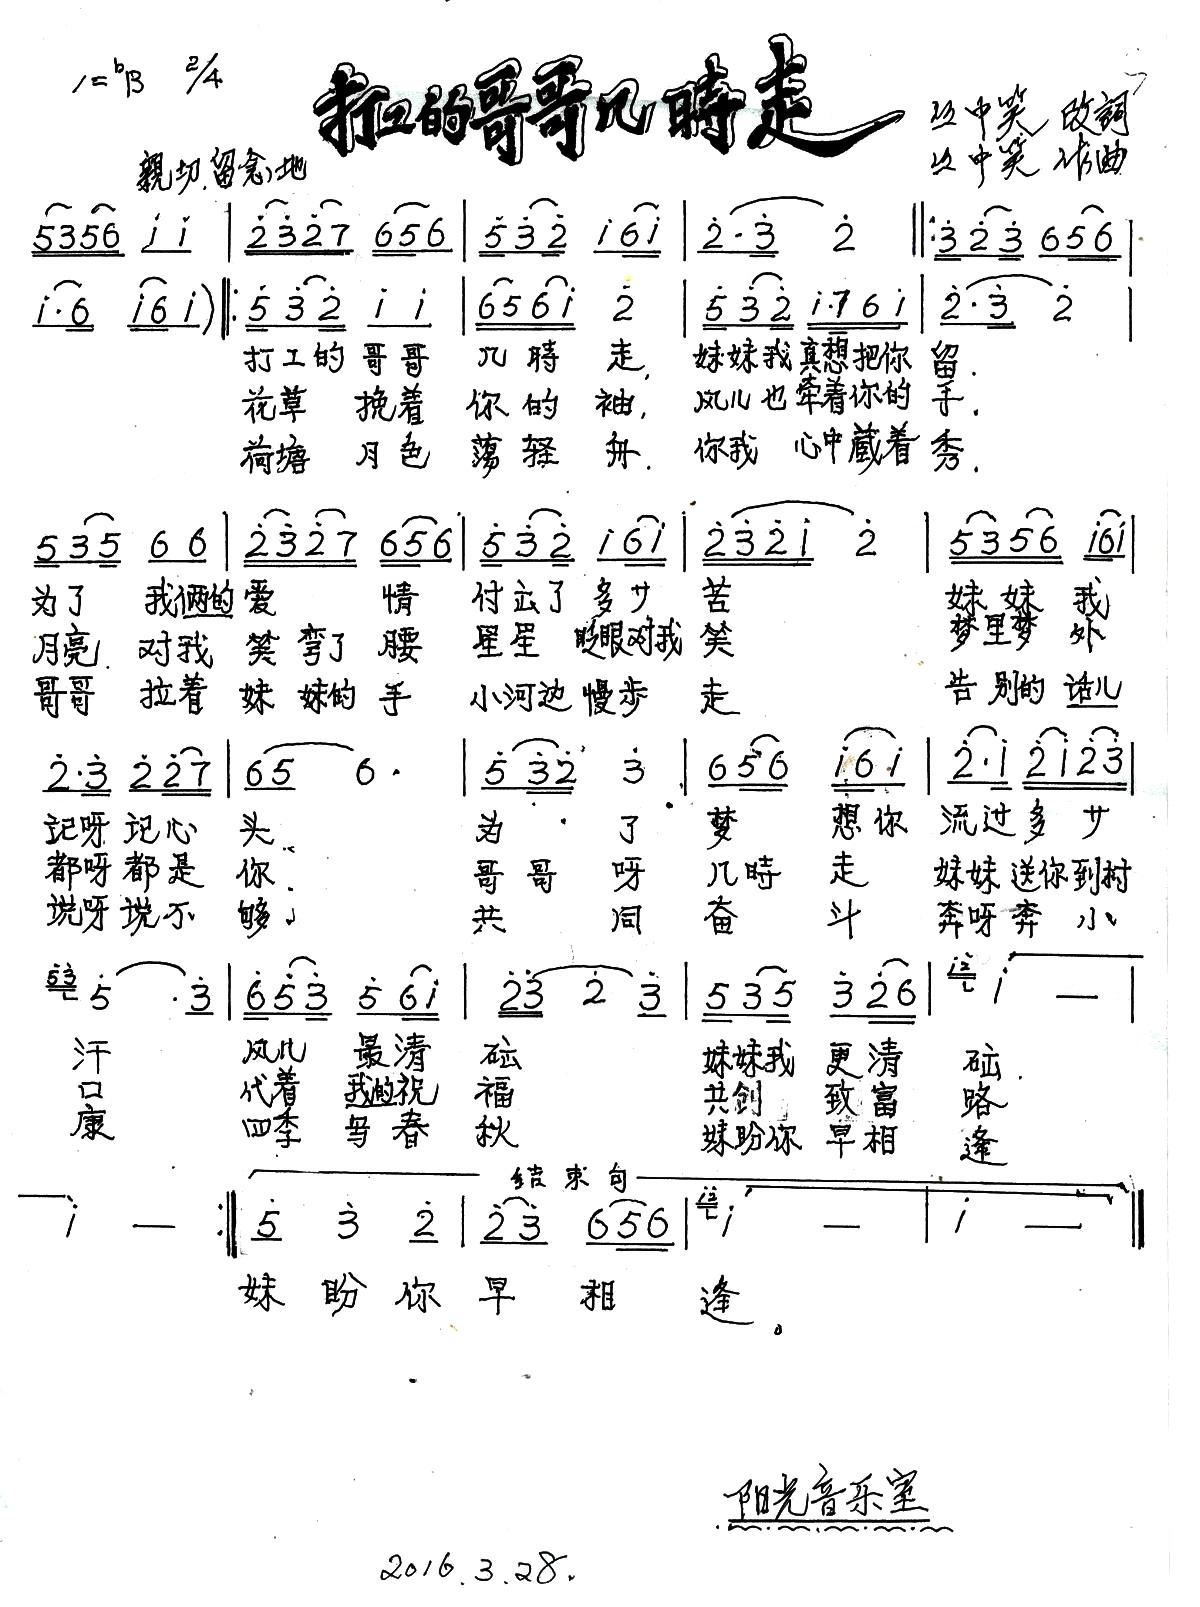 1=ᵇB 2/4
打工的哥哥几時走
丛中笑 改詞
丛中笑 作曲
親切.留念地
5356 i i | 2327 656 | 532 i6i | 2·3 2 ‖: 323 656 |
i·6 i6i) ‖: 532 i i | 656i 2 | 532 i·76i | 2·3 2 |
打工的哥哥 几時 走, 妹妹我真想把你 留.
花草 挽着 你的 袖, 风儿也牵着你的 手.
荷塘 月色 荡轻 舟. 你我 心中藏着 秀.
535 66 | 2327 656 | 532 i6i | 232i 2 | 5356 i6i |
为了 我俩的爱 情 付出了多少 苦 妹妹 我
月亮 对我 笑弯了腰 星星 眨眼对我 笑 梦里梦 外
哥哥 拉着 妹妹的手 小河边慢步 走 告别的 话儿
2·3 227 | 65 6· | 532 3 | 656 i6i | 2·i 2i23 |
记呀记心 头. 为了 梦 想你 流过多少
都呀都是 你. 哥哥呀 几時 走 妹妹送你到村
说呀说不 够. 共同 奋斗 奔呀奔小
53 5 ·3 | 653 56i | 23 2 3 | 535 326 | i2 i — |
汗 风儿 最清 础 妹妹我 更清 础.
口 代着 我的祝 福 共创 致富 路
康 四季 鸟春 秋 妹盼你 早相 逢
结束句
i — :‖ 5 3 2 | 23 656 | i2 i — | i — ‖
妹 盼 你 早 相 逢。
阳光音乐室
2016.3.28.